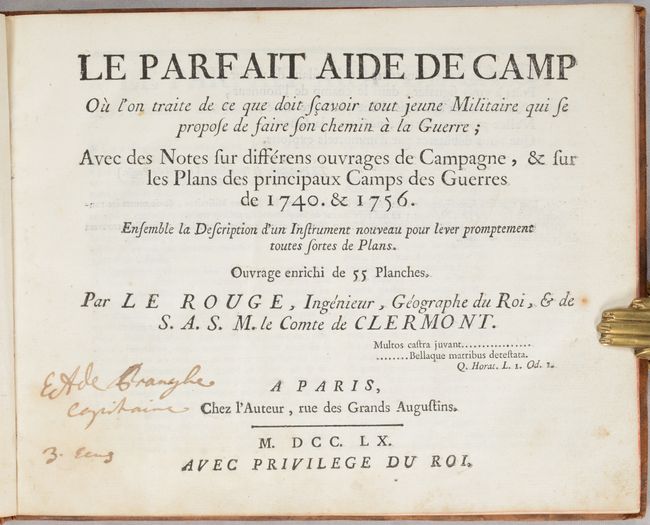 LE PARFAIT AIDE DE CAMP
Où l'on traite de ce que doit ſçavoir tout jeune Militaire qui ſe
propoſe de faire ſon chemin à la Guerre ;
Avec des Notes ſur différens ouvrages de Campagne , & ſur
les Plans des principaux Camps des Guerres
de 1740. & 1756.
Enſemble la Deſcription d'un Inſtrument nouveau pour lever promptement
toutes ſortes de Plans.
Ouvrage enrichi de 55 Planches.
Par LE ROUGE, Ingénieur, Géographe du Roi, & de
S. A. S. M. le Comte de CLERMONT.
Multos caſtra juvant.................
........Bellaque matribus deteſtata.
Q. Horat. L. 1. Od. 1.
A PARIS,
Chez l'Auteur, rue des Grands Auguſtins.
capitaine
M. DCC. LX.
3.
AVEC PRIVILEGE DU ROI.